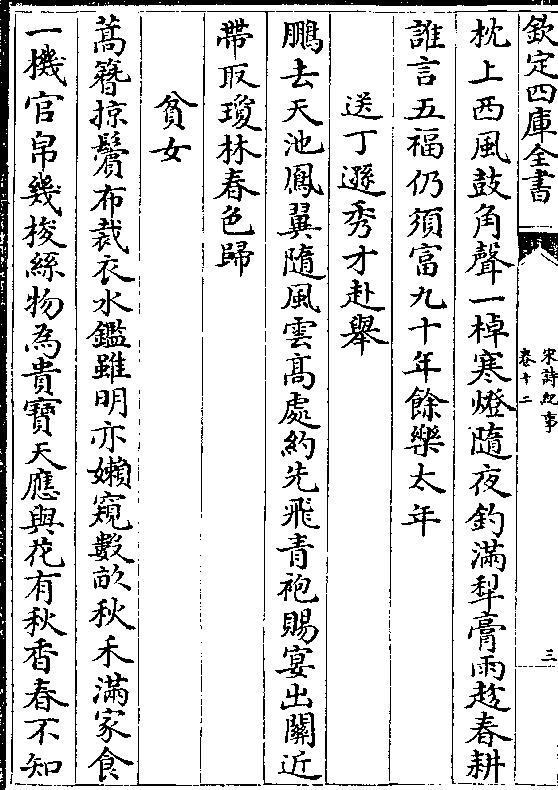 欽定四庫全書
宋詩紀事
卷十二
三
枕上西風鼓角聲一棹寒燈隨夜釣滿犂膏雨趂春耕
誰言五福仍須富九十年餘樂太年
送丁遜秀才赴舉
鵬去天池鳳翼隨風雲髙處約先飛青袍賜宴出關近
帶取瓊林春色歸
貧女
蒿簪掠鬢布裁衣水鑑雖明亦嬾窺數畝秋禾滿家食
一機官帛幾梭絲物為貴寳天應與花有秋香春不知